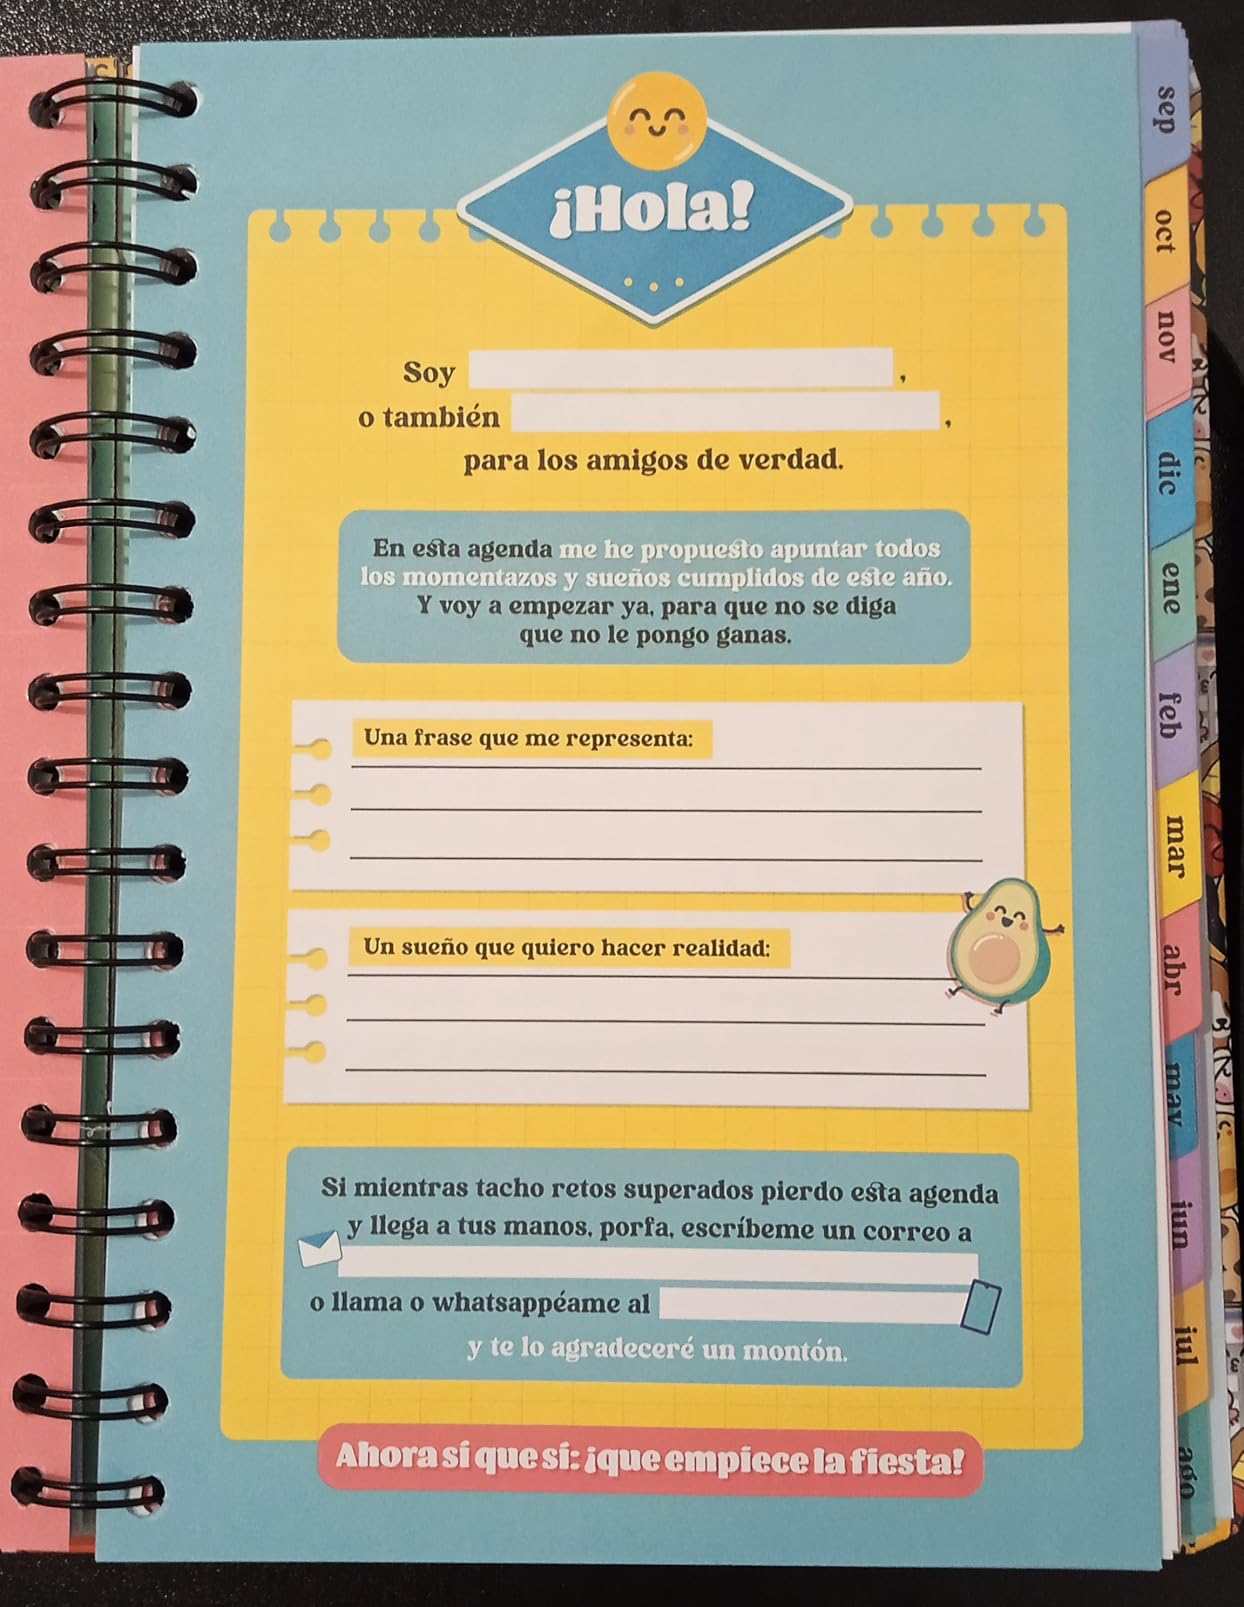 ¡Hola!
Soy ,
o también ,
para los amigos de verdad.
En esta agenda me he propuesto apuntar todos
los momentazos y sueños cumplidos de este año.
Y voy a empezar ya, para que no se diga
que no le pongo ganas.
Una frase que me representa:
Un sueño que quiero hacer realidad:
Si mientras tacho retos superados pierdo esta agenda
y llega a tus manos, porfa, escríbeme un correo a
o llama o whatsappéame al
y te lo agradeceré un montón.
Ahora sí que sí: ¡que empiece la fiesta!
sep
oct
nov
dic
ene
feb
mar
abr
may
jun
jul
ago